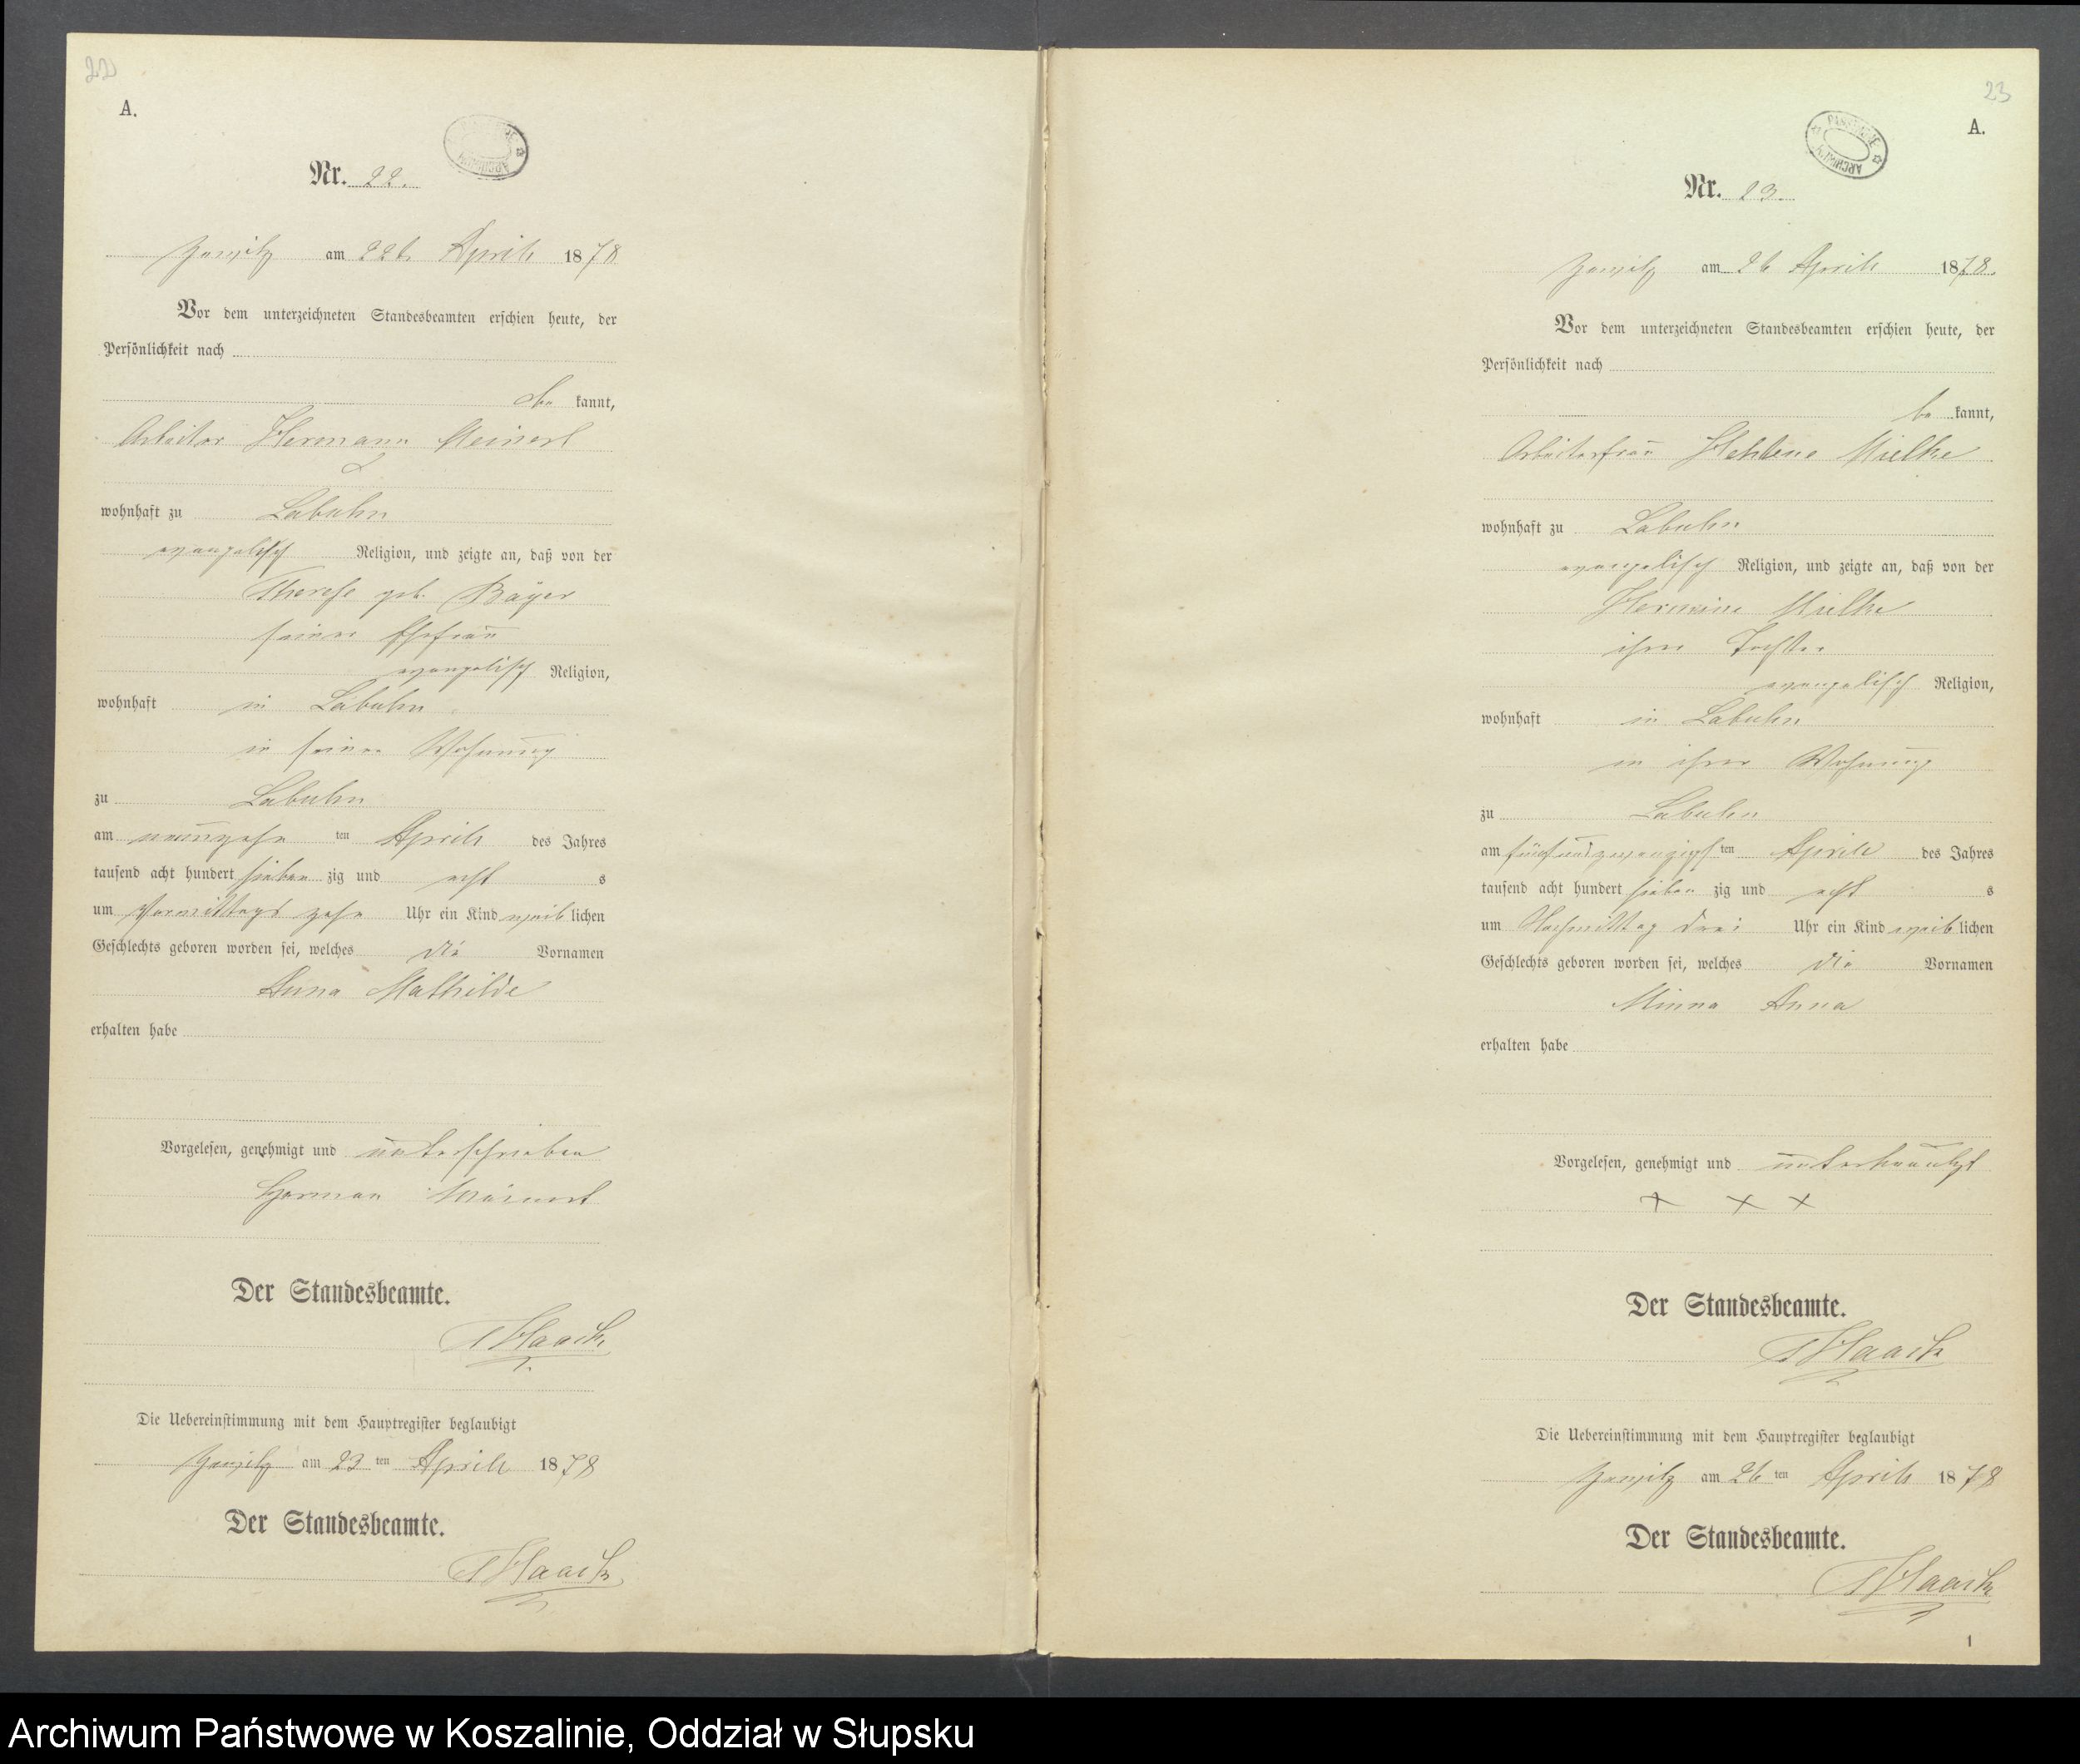 22
A.
Nr. 22.
am 22t April 1878
Vor dem unterzeichneten Standesbeamten erschien heute, der
Persönlichkeit nach
be kannt,
Arbeiter Hermann Meinert
wohnhaft zu Labuhn
evangelisch Religion, und zeigte an, daß von der
Therese geb. Bayer
seiner Ehefrau
evangelisch Religion,
wohnhaft in Labuhn
in seiner Wohnung
zu Labuhn
am neunzehn ten April des Jahres
tausend acht hundert sieben zig und acht s
um Vormittags zehn Uhr ein Kind weib lichen
Geschlechts geboren worden sei, welches die Vornamen
Anna Mathilde
erhalten habe
Vorgelesen, genehmigt und unterschrieben
Herman Meinert
Der Standesbeamte.
Haack
Die Uebereinstimmung mit dem Hauptregister beglaubigt
am 23 ten April 1878
Der Standesbeamte.
Haack
23
A.
ARCHIWUM PAŃSTWOWE
Nr. 23.
am 26 April 1878.
Vor dem unterzeichneten Standesbeamten erschien heute, der
Persönlichkeit nach
be kannt,
Arbeiterfrau Mielke
wohnhaft zu Labuhn
evangelisch Religion, und zeigte an, daß von der
Hermine Mielke
ihrer Tochter
evangelisch Religion,
wohnhaft in Labuhn
in ihrer Wohnung
zu Labuhn
am fünfundzwanzigsten April des Jahres
tausend acht hundert sieben zig und acht s
um Nachmittag drei Uhr ein Kind weib lichen
Geschlechts geboren worden sei, welches die Vornamen
Minna Anna
erhalten habe
Vorgelesen, genehmigt und unterkreuzt
x x x
Der Standesbeamte.
Haack
Die Uebereinstimmung mit dem Hauptregister beglaubigt
am 26 ten April 1878
Der Standesbeamte.
Haack
1
Archiwum Państwowe w Koszalinie, Oddział w Słupsku